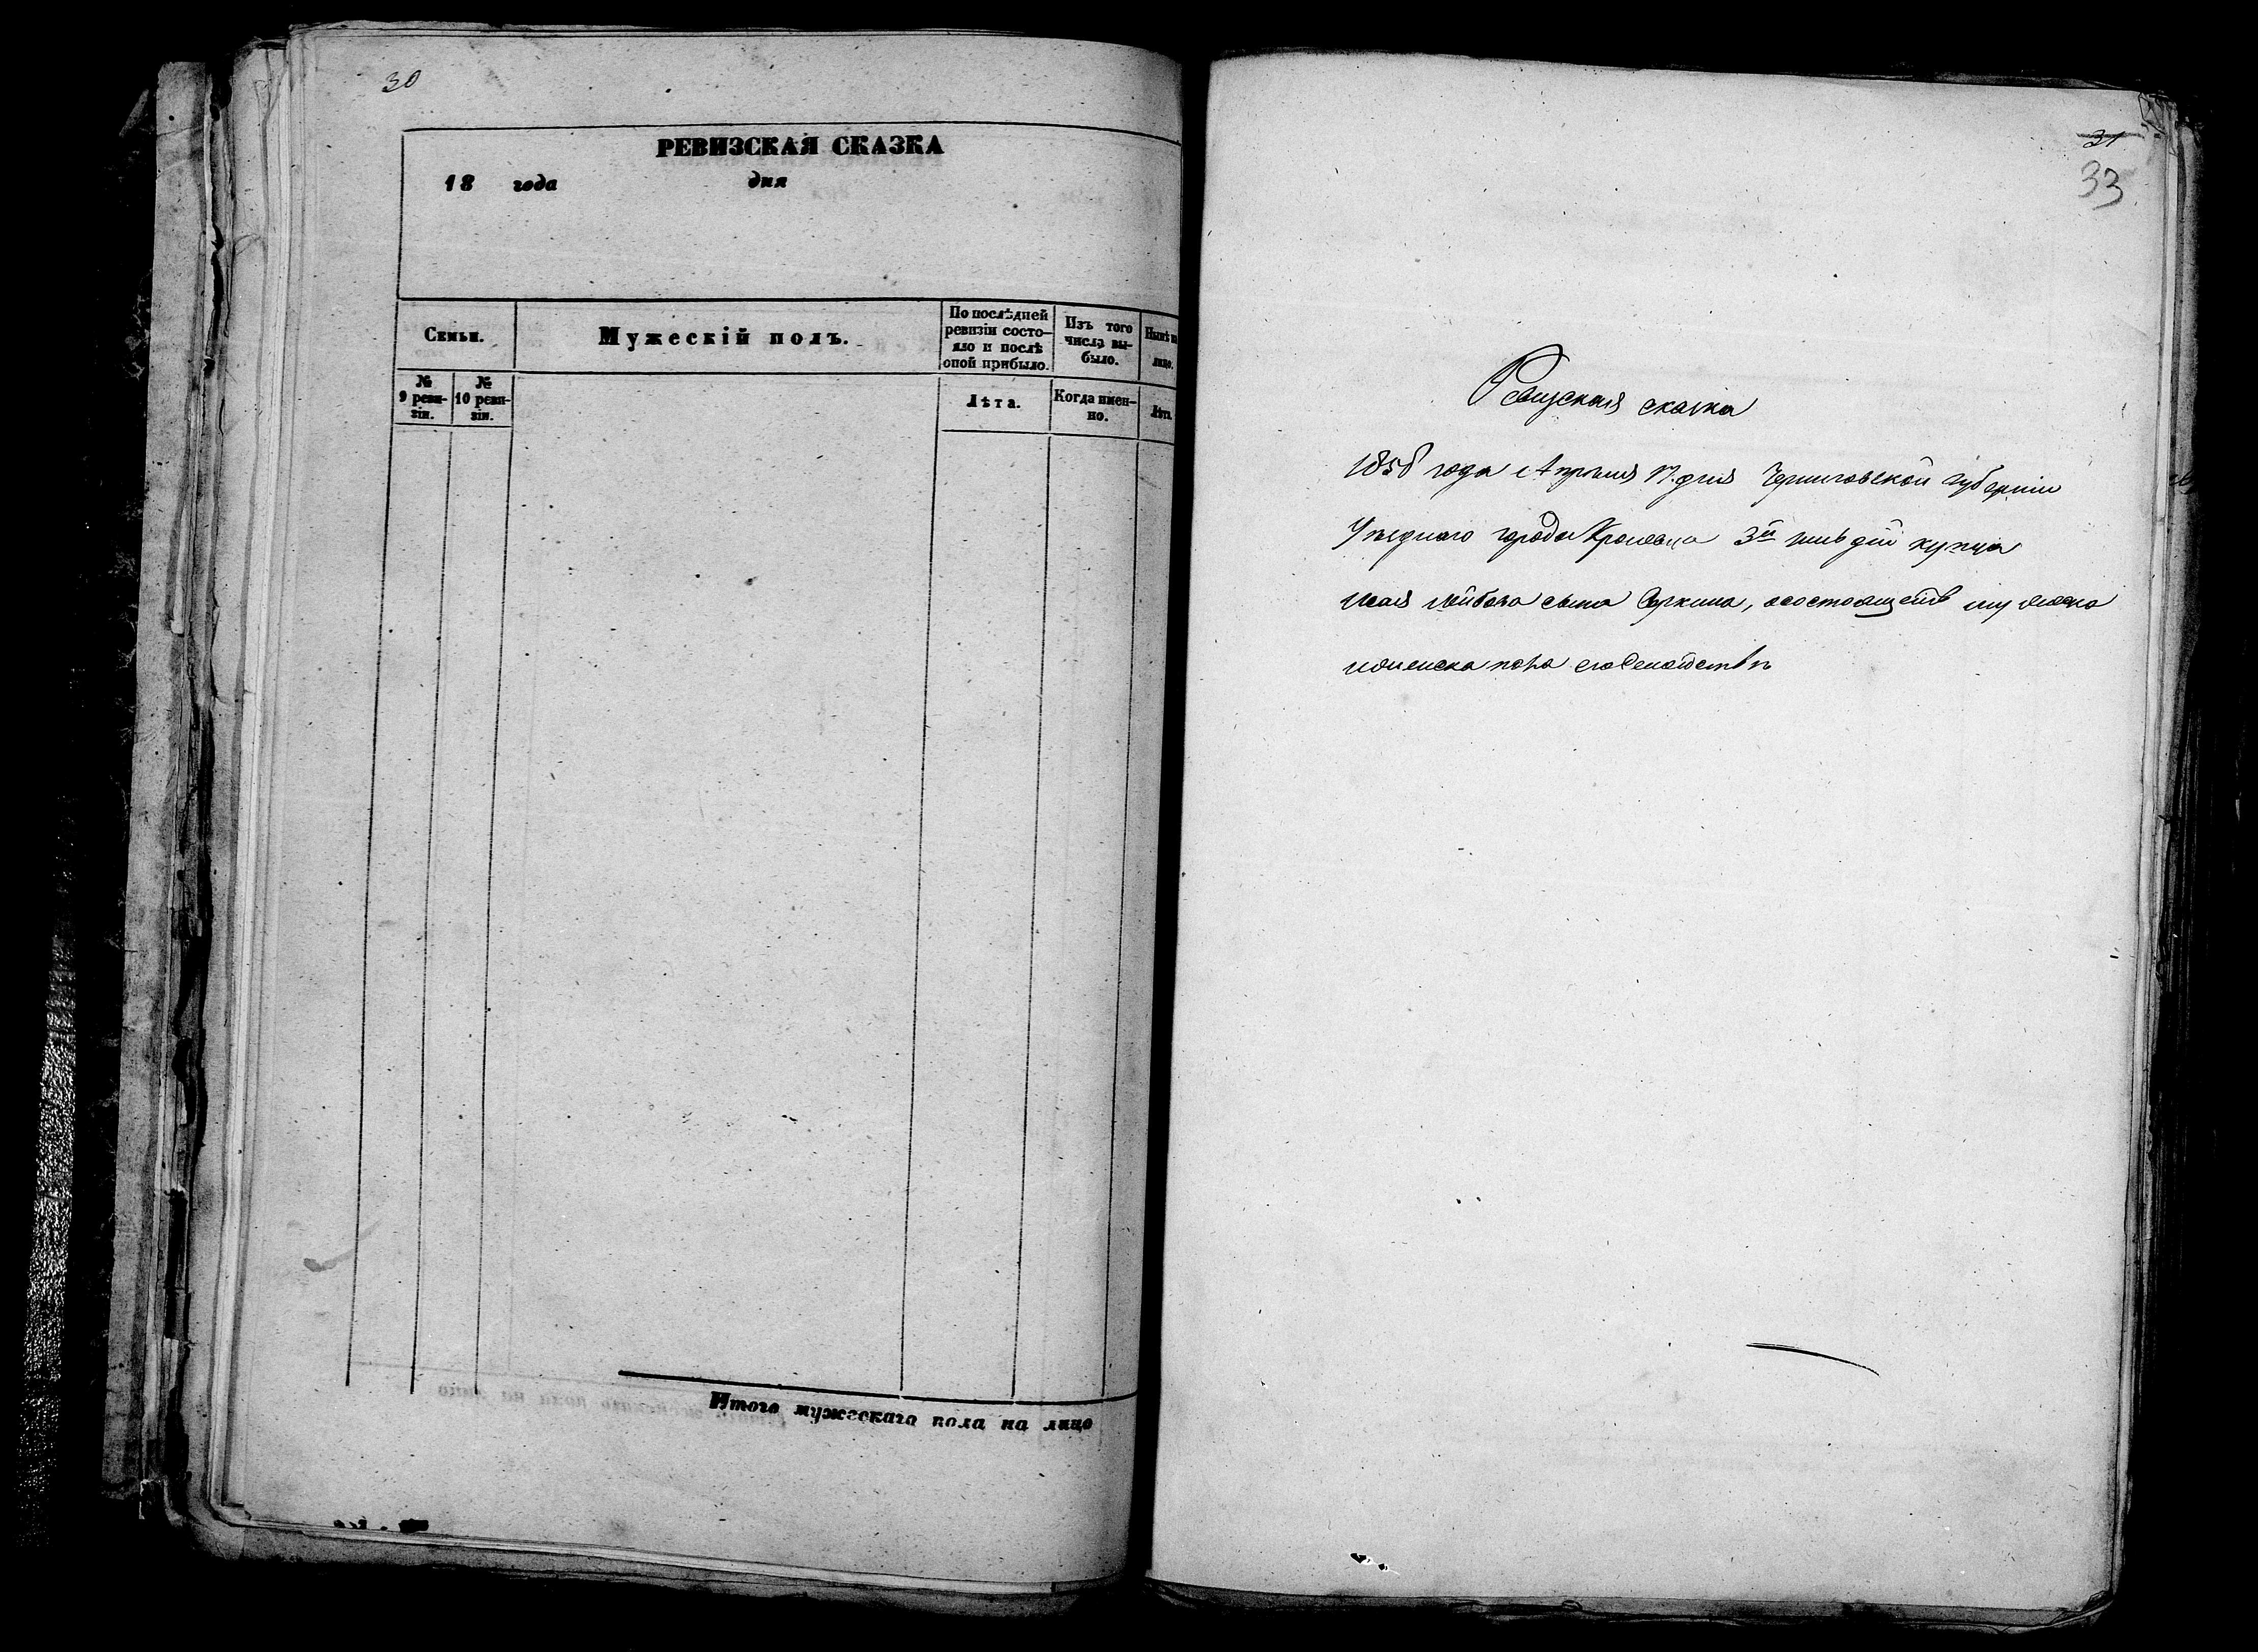 30
РЕВИЗСКАЯ СКАЗКА
18 года дня
Семьи.
Мужескій полъ.
По послѣдней
ревизіи состо-
яло и послѣ
оной прибыло.
Изъ того
числа вы-
было.
Нынѣ на
лицо.
№
9 реви-
зіи.
№
10 реви-
зіи.
Лѣта.
Когда имен-
но.
Лѣта.
Итого мужескаго пола на лицо
31
33
Ревизская сказка
1858 года Апреля 17 дня Черниговской губерніи
Уезднаго города Кролевца 3й гильдіи купца
сына Соркина, о состоящей мужеска
и женска пола его Семействѣ